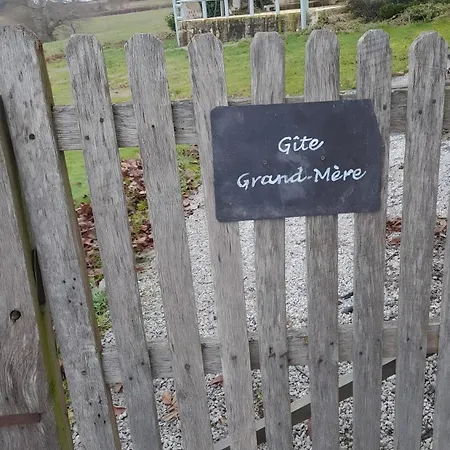 Gîte
Grand-Mère